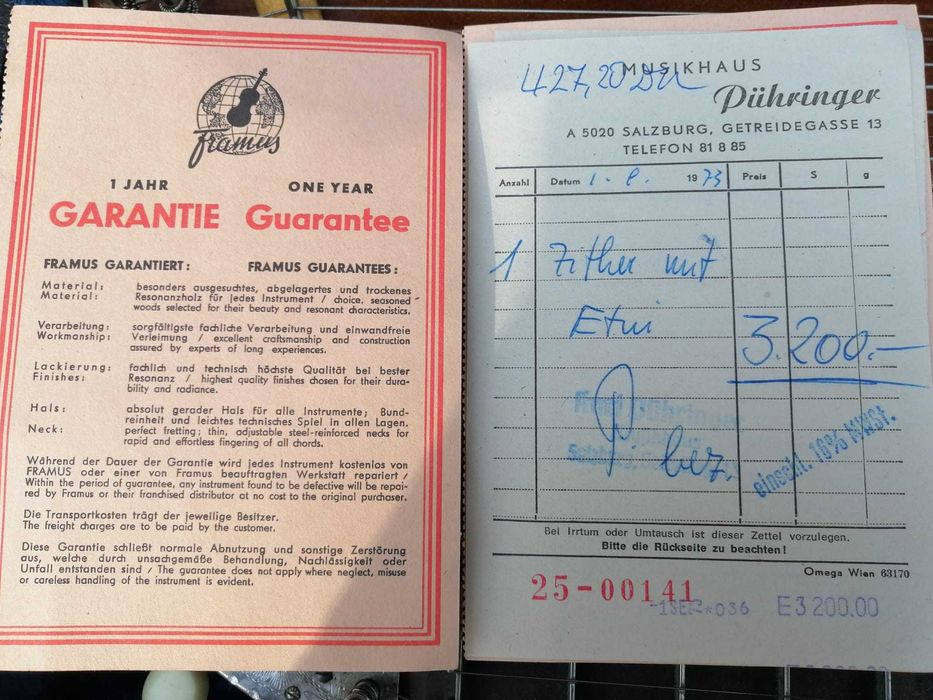 Framus
1 JAHR ONE YEAR
GARANTIE Guarantee
FRAMUS GARANTIERT: FRAMUS GUARANTEES:
Material: besonders ausgesuchtes, abgelagertes und trockenes
Material: Resonanzholz für jedes Instrument / choice, seasoned
woods selected for their beauty and resonant characteristics.
Verarbeitung: sorgfältigste fachliche Verarbeitung und einwandfreie
Workmanship: Verleimung / excellent craftsmanship and construction
assured by experts of long experiences.
Lackierung: fachlich und technisch höchste Qualität bei bester
Finishes: Resonanz / highest quality finishes chosen for their dura-
bility and radiance.
Hals: absolut gerader Hals für alle Instrumente; Bund-
reinheit und leichtes technisches Spiel in allen Lagen.
Neck: perfect fretting; thin, adjustable steel-reinforced necks for
rapid and effortless fingering of all chords.
Während der Dauer der Garantie wird jedes Instrument kostenlos von
FRAMUS oder einer von Framus beauftragten Werkstatt repariert /
Within the period of guarantee, any instrument found to be defective will be repai-
red by Framus or their franchised distributor at no cost to the original purchaser.
Die Transportkosten trägt der jeweilige Besitzer.
The freight charges are to be paid by the customer.
Diese Garantie schließt normale Abnutzung und sonstige Zerstörung
aus, welche durch unsachgemäße Behandlung, Nachlässigkeit oder
Unfall entstanden sind / The guarantee does not apply where neglect, misuse
or careless handling of the instrument is evident.
427,20
MUSIKHAUS
Pühringer
A 5020 SALZBURG, GETREIDEGASSE 13
TELEFON 81 8 85
Anzahl Datum 1. 1973 Preis S g
1 Zither mit
Etui 3.200.-
Pühringer
bez.
einschl. 16% MWSt.
Bei Irrtum oder Umtausch ist dieser Zettel vorzulegen.
Bitte die Rückseite zu beachten!
Omega Wien 63170
25-00141
-1SEP*036 E3 200.00